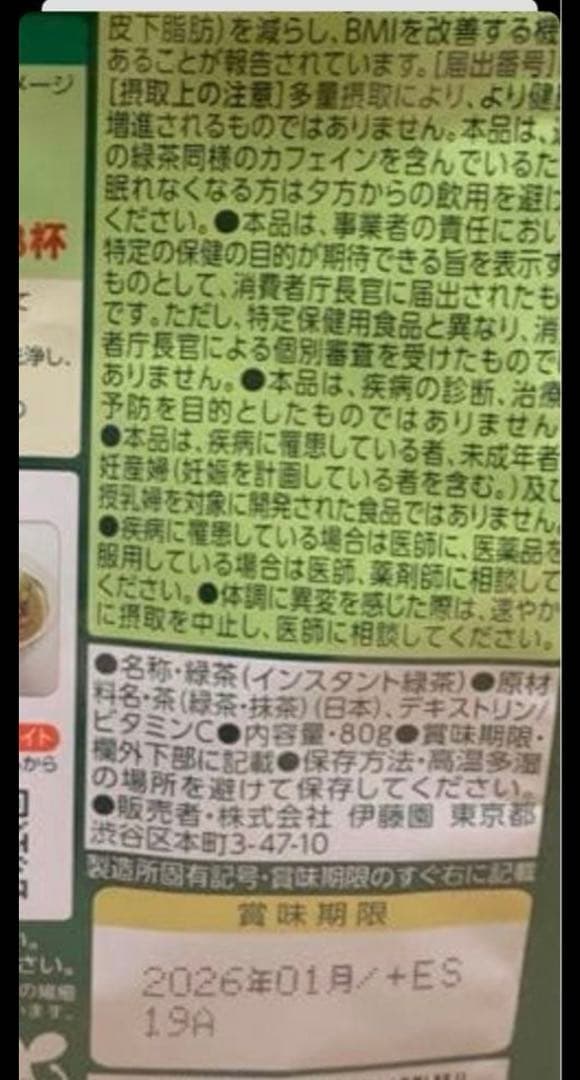 皮下脂肪)を減らし、BMIを改善する機
あることが報告されています。[届出番号]
[摂取上の注意]多量摂取により、より健
増進されるものではありません。本品は、
の緑茶同様のカフェインを含んでいるた
眠れなくなる方は夕方からの飲用を避け
ください。●本品は、事業者の責任におい
特定の保健の目的が期待できる旨を表示す
ものとして、消費者庁長官に届出されたも
です。ただし、特定保健用食品と異なり、消
者庁長官による個別審査を受けたもので
ありません。●本品は、疾病の診断、治療
予防を目的としたものではありません
●本品は、疾病に罹患している者、未成年者
妊産婦(妊娠を計画している者を含む。)及び
授乳婦を対象に開発された食品ではありません。
●疾病に罹患している場合は医師に、医薬品を
服用している場合は医師、薬剤師に相談して
ください。●体調に異変を感じた際は、速やか
に摂取を中止し、医師に相談してください。
●名称・緑茶(インスタント緑茶)●原材
料名・茶(緑茶・抹茶)(日本)、デキストリン/
ビタミンC●内容量・80g●賞味期限・
欄外下部に記載●保存方法・高温多湿
の場所を避けて保存してください。
●販売者・株式会社 伊藤園 東京都
渋谷区本町3-47-10
製造所固有記号・賞味期限のすぐ右に記載
賞味期限
2026年01月/+ES
19A
メージ
杯
浄し、
イト
から
さい。
の繊細
います。